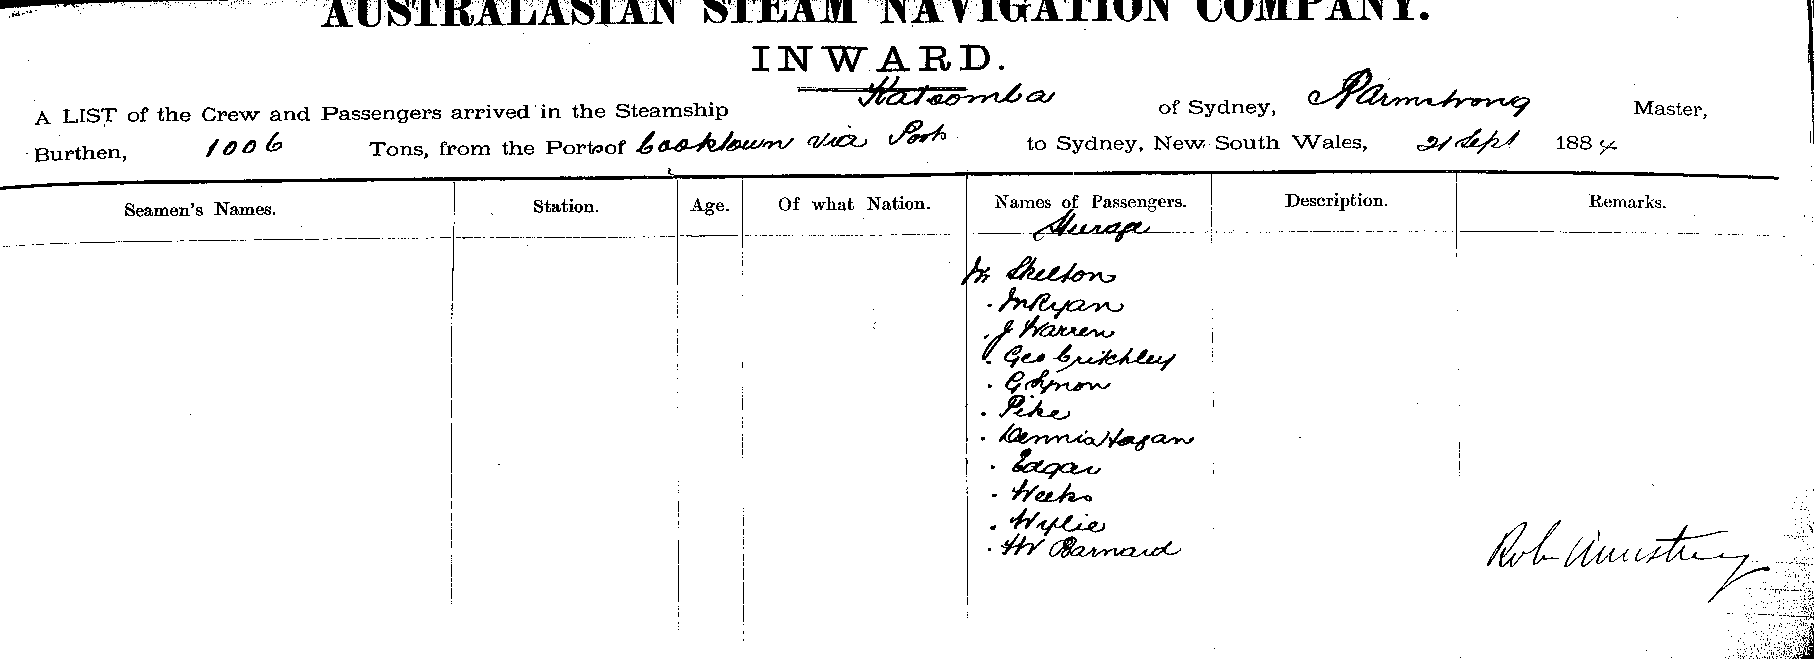 AUSTRALASIAN STEAM NAVIGATION COMPANY.
INWARD.
A LIST of the Crew and Passengers arrived in the Steamship Katoomba of Sydney, R Armstrong Master,
Burthen, 1006 Tons, from the Port of Cooktown via Ports to Sydney, New South Wales, 21 Sept 1884
Seamen's Names. Station. Age. Of what Nation. Names of Passengers. Description. Remarks.
Steerage
Mr Skelton
" M Ryan
" J Warren
" Geo Critchley
" G Lynon
" Pike
" Dennis Hogan
" Edgar
" Weeks
" Wylie
" W Barnard
Robt Armstrong